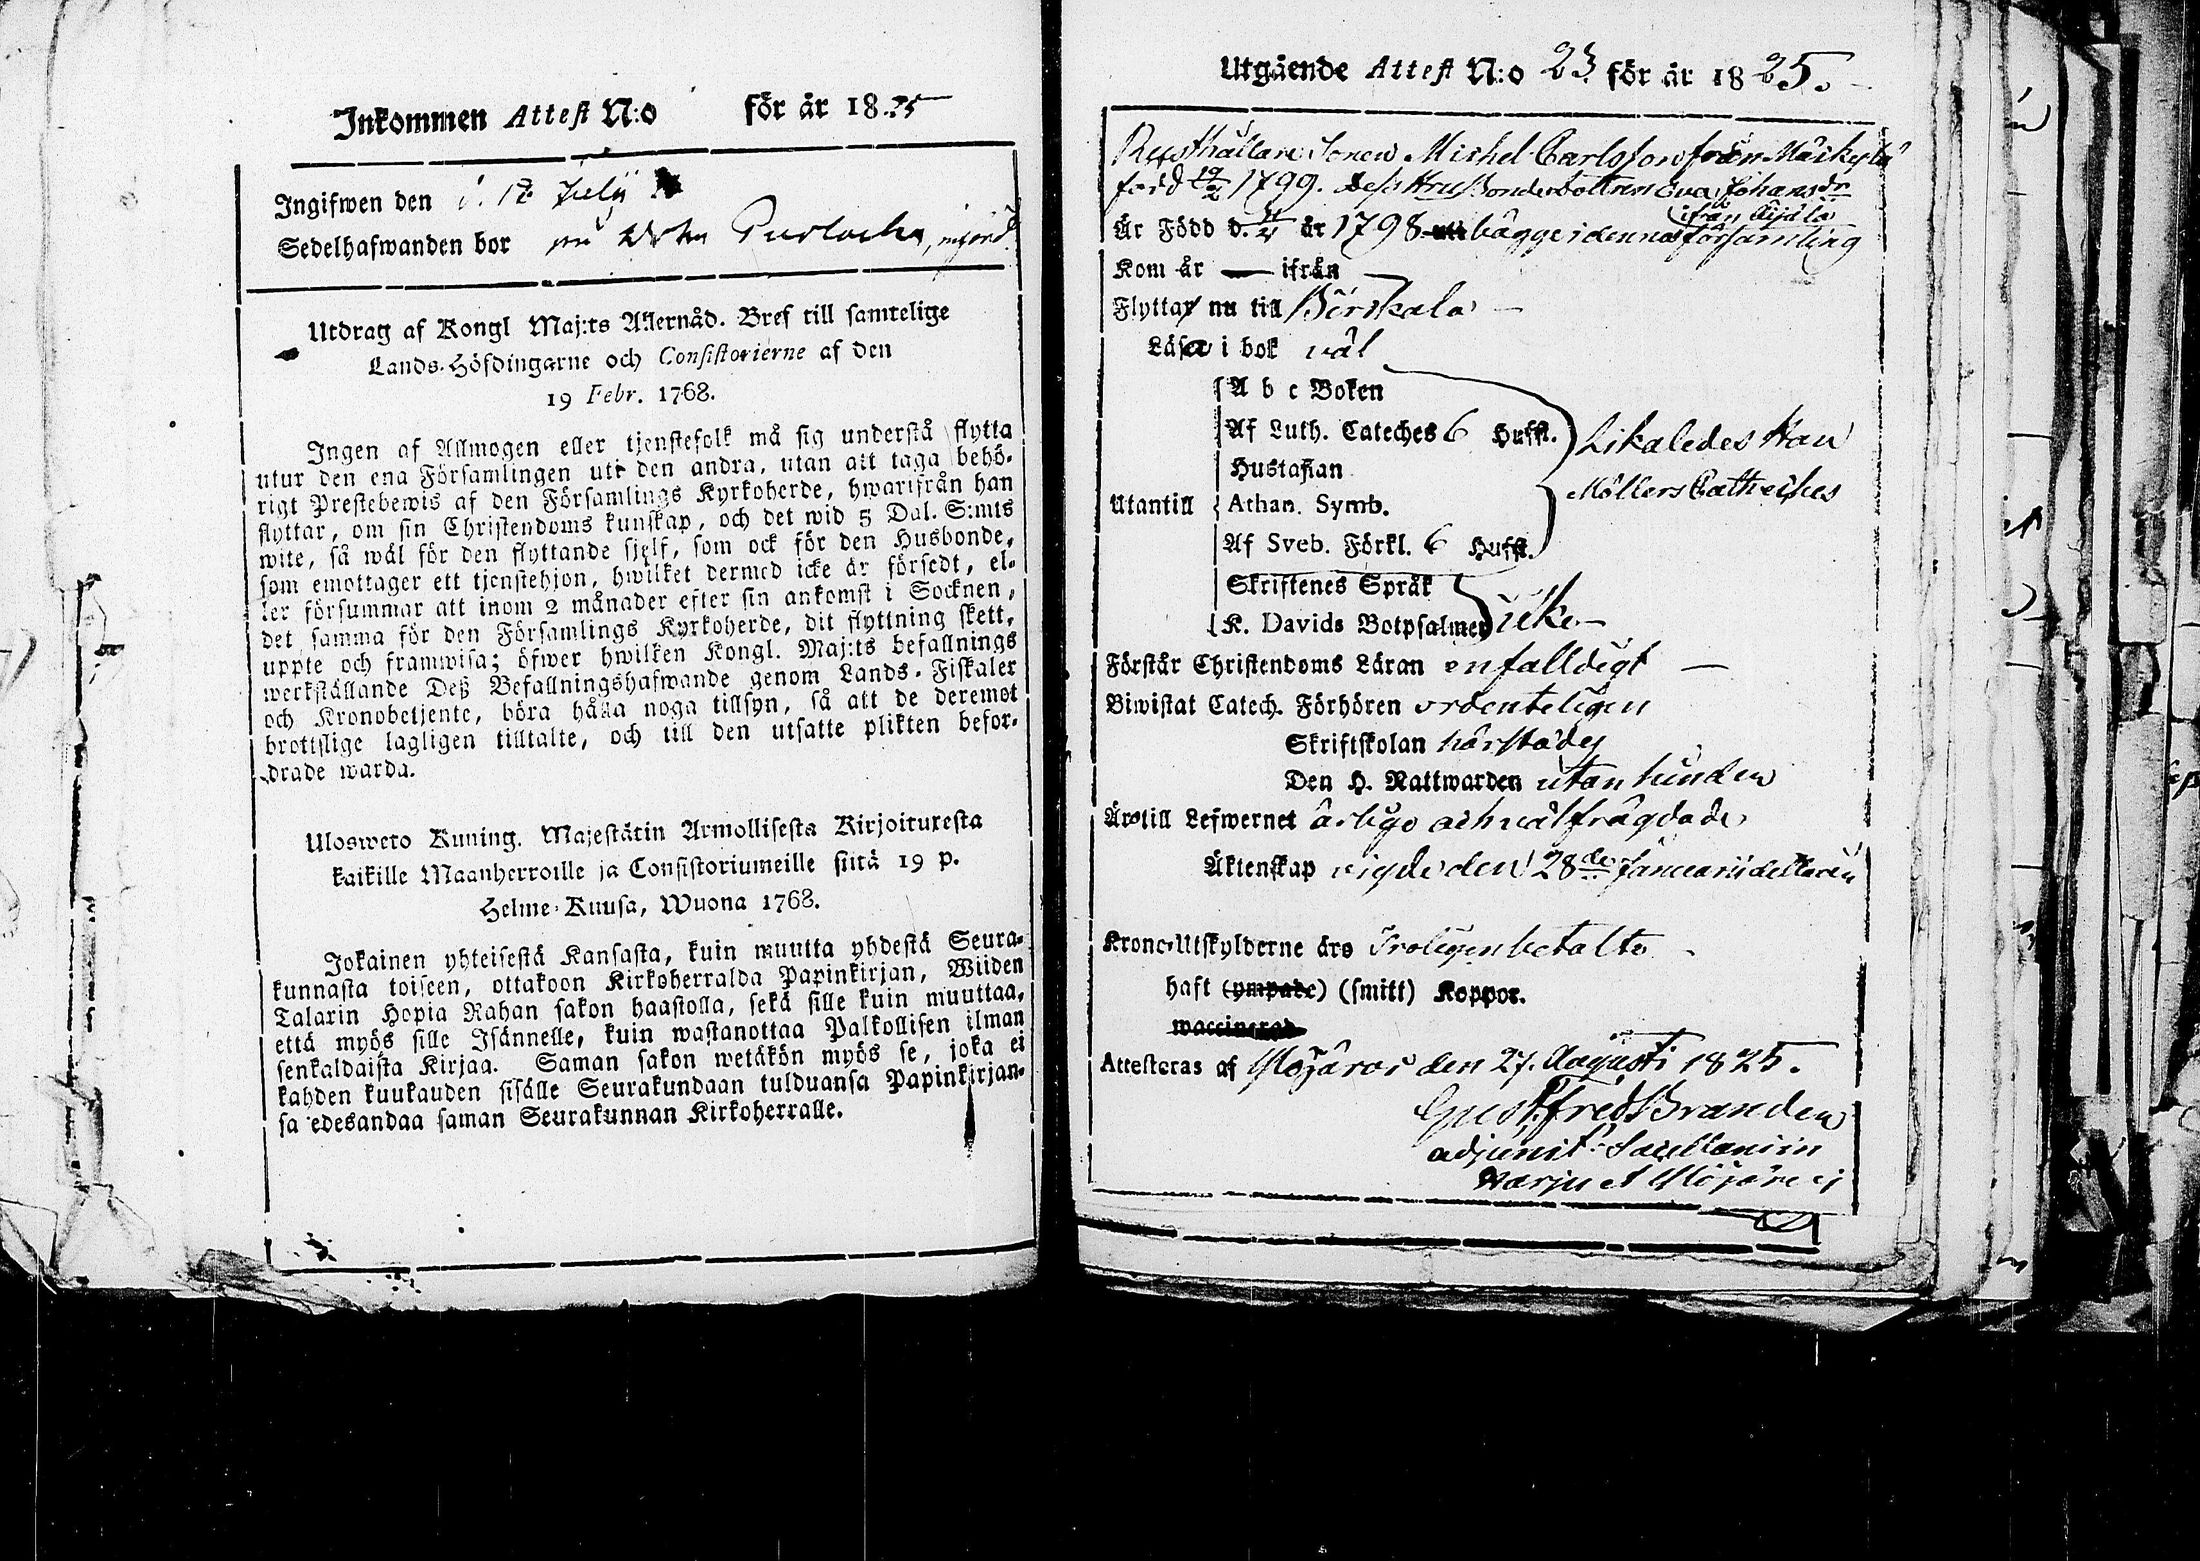 Inkommen Attest N:o för år 1825
Ingifwen den d. 18 July
Sedelhafwanden bor på
Utdrag af Kongl Maj:ts Allernåd. Bref till samtelige
Lands-Höfdingarne och Consistorierne af den
19 Febr. 1768.
Ingen af Allmogen eller tjenstefolk må sig understå flytta
utur den ena Församlingen uti den andra, utan att taga behö-
rigt Prestebewis af den Församlings Kyrkoherde, hwarifrån han
flyttar, om sin Christendoms kunskap, och det wid 5 Dal. S:mts
wite, så wäl för den flyttande sjelf, som ock för den Husbonde,
som emottager ett tjenstehjon, hwilket dermed icke är försedt, el-
ler försummar att inom 2 månader efter sin ankomst i Socknen,
det samma för den Församlings Kyrkoherde, dit flyttning skett,
uppte och framwisa; öfwer hwilken Kongl. Maj:ts befallnings
werkställande Deß Befallningshafwande genom Lands-Fiskaler
och Kronobetjente, böra hålla noga tillsyn, så att de deremot
brottslige lagligen tilltalte, och till den utsatte plikten befor-
drade warda.
Ulosweto Kuning. Majestätin Armollisesta Kirjoituxesta
kaikille Maanherroille ja Consistoriumeille siitä 19 p.
Helme-Kuusa, Wuona 1768.
Jokainen yhteisestä Kansasta, kuin muutta yhdestä Seura-
kunnasta toiseen, ottakoon Kirkoherralda Papinkirjan, Wiiden
Talarin Hopia Rahan sakon haastolla, sekä sille kuin muuttaa,
että myös sille Isännelle, kuin wastanottaa Palkollisen ilman
senkaldaista Kirjaa. Saman sakon wetäkön myös se, joka ei
kahden kuukauden sisälle Seurakundaan tulduansa Papinkirjan-
sa edesandaa saman Seurakunnan Kirkoherralle.
Utgående Attest N:o 23 för år 1825.
Rusthållare Sonen Michel Carlsson från Mäskylä
född 19/2 1799. dess Hru Bondedottren Eva Johansdr
ifrån
Är Född d. år 1798 bägge i denna församling
Kom år — ifrån —
Flyttar nu till Birckala —
Läsa i bok väl
A b c Boken
Af Luth. Cateches 6 Hufst.
Hustaflan
Utantill Athan. Symb.
Af Sveb. Förkl. 6 Hufst.
Likaledes Han
Möllers Catheches
Skriftenes Språk
K. Davids Botpsalmer icke —
Förstår Christendoms Läran enfalldigt —
Biwistat Catech. Förhören ordenteligen
Skriftskolan härstädes
Den H. Nattwarden utan hinder
Äro till Lefwernet ärlige och välfrägdade
Äktenskap vigde den 28de Januarii detta år
Krono-Utskylderne äro Troligen betalte
haft (ympade) (smitt) Koppor.
waccinerad
Attesteras af Mojärvi den 27. Augusti 1825.
Gust. Fred. Branden
adjunct: Sacellani in
Harju et Mojärvi